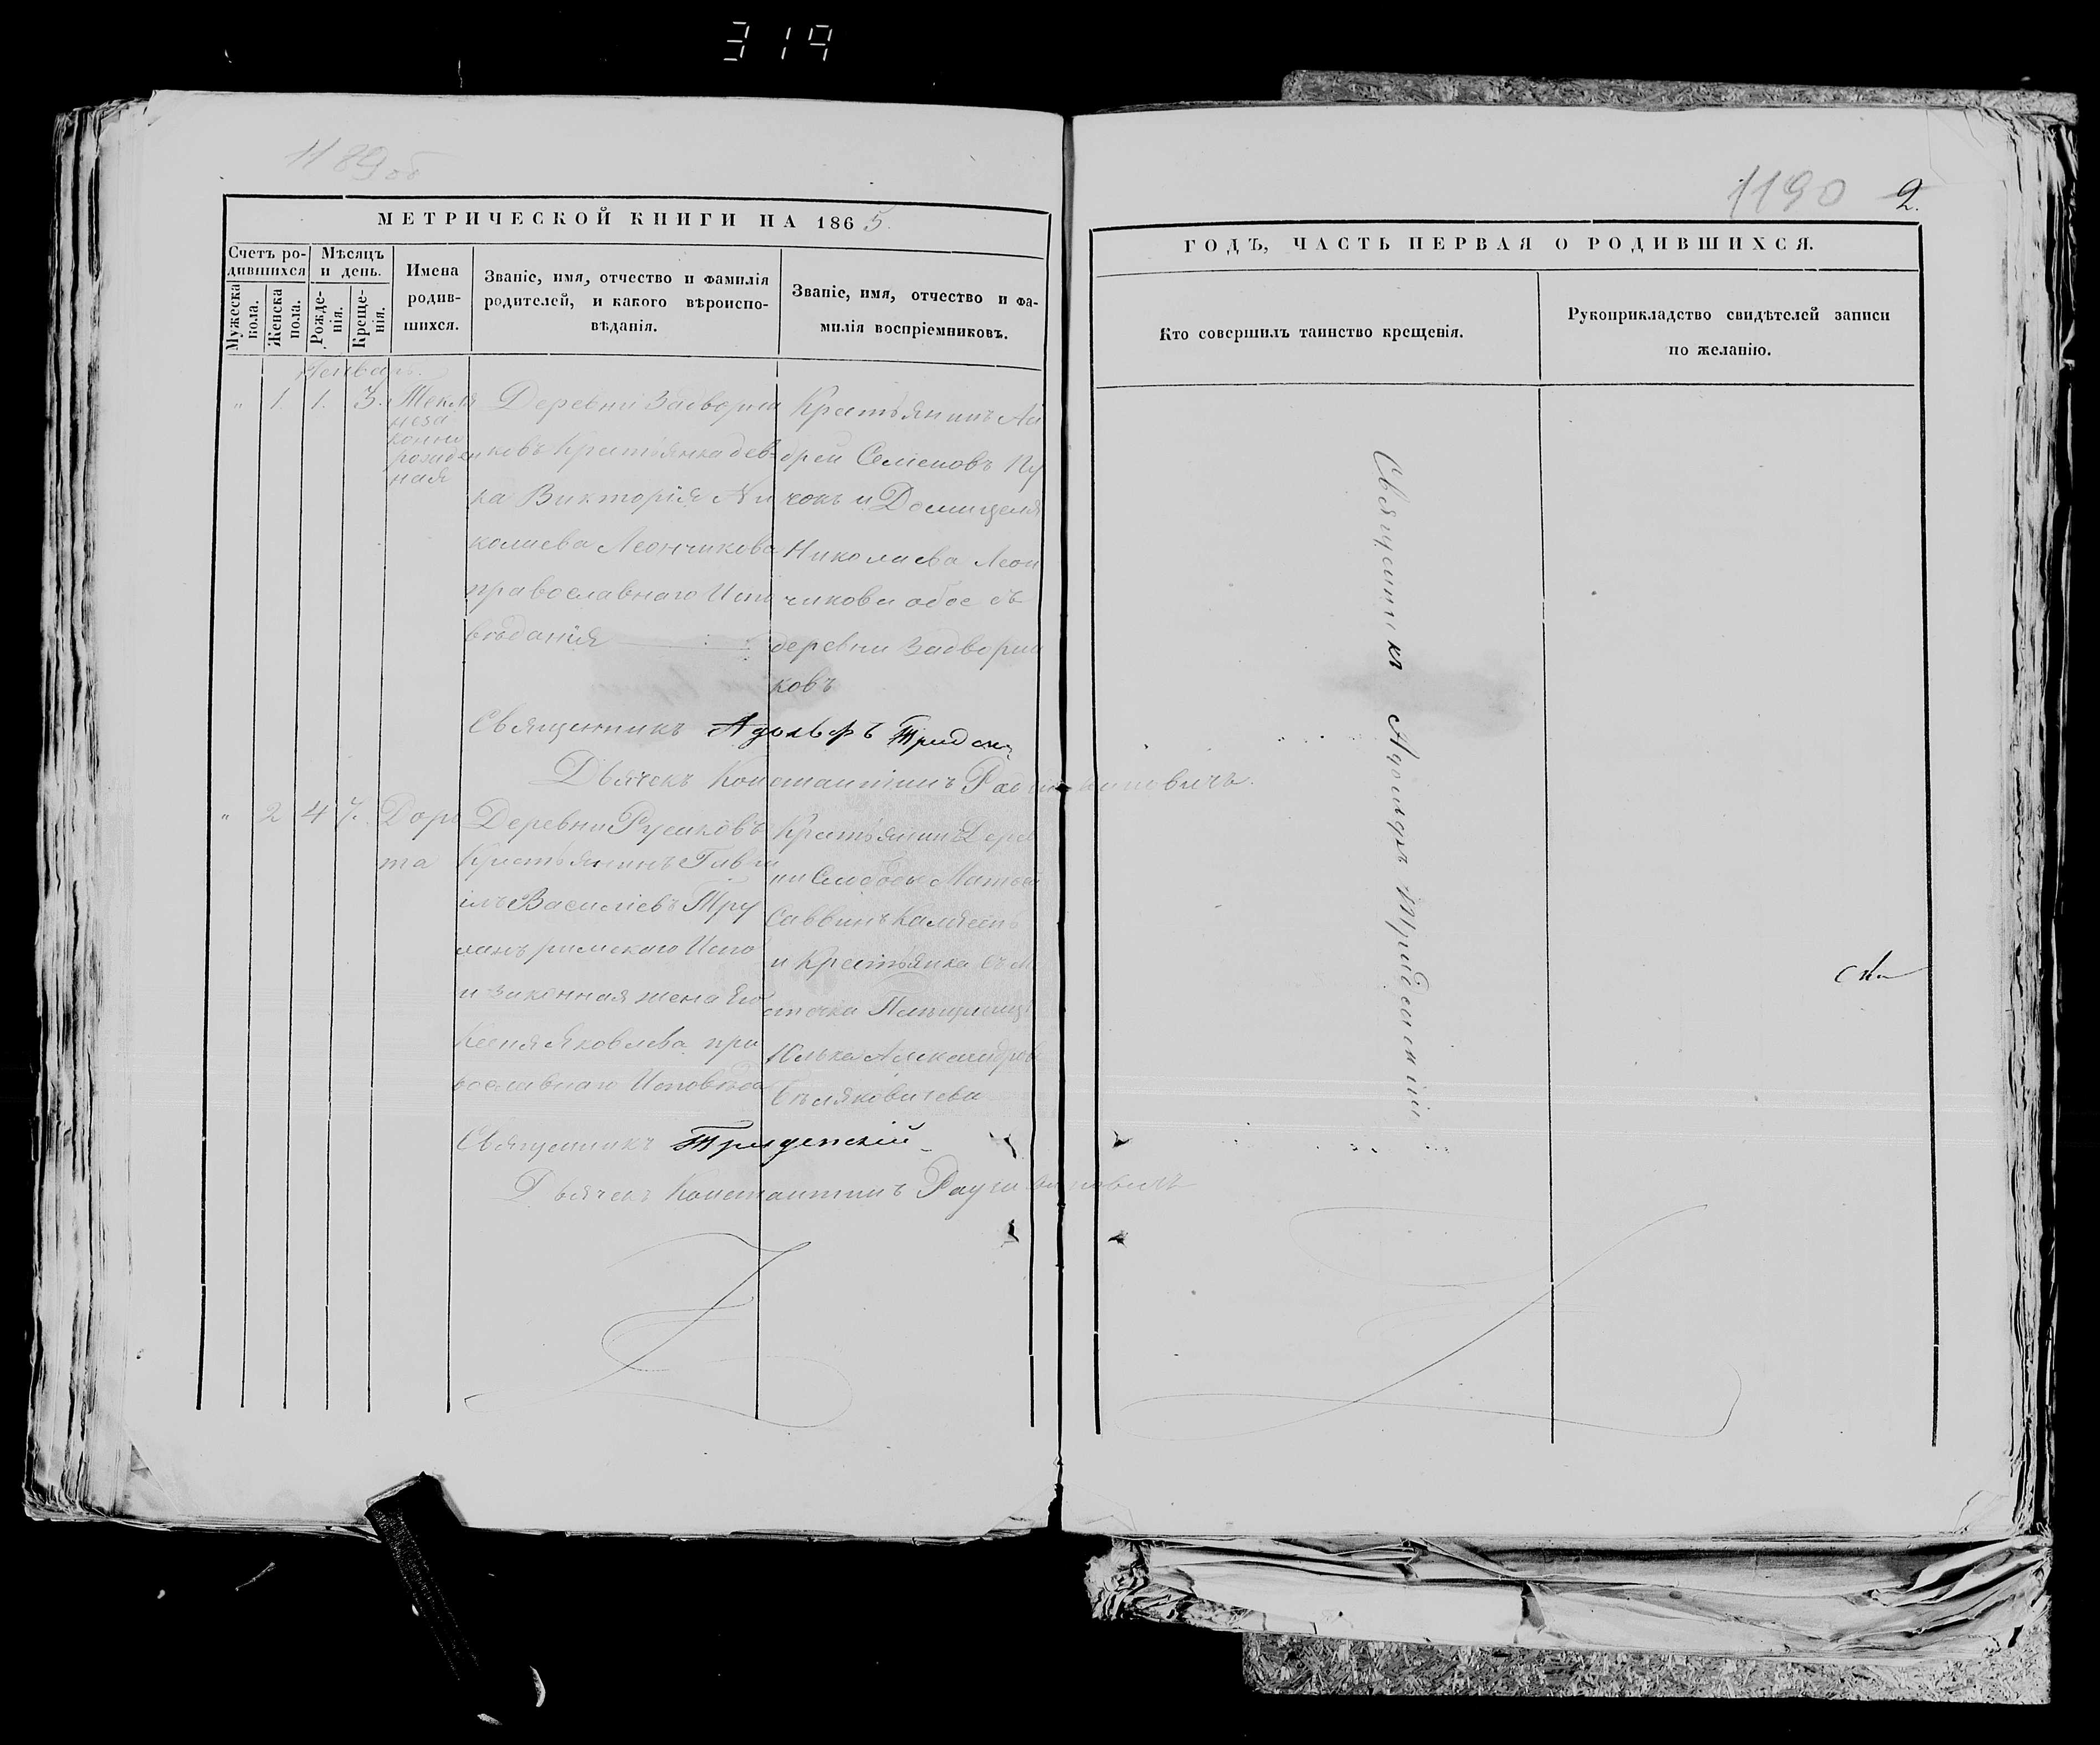 319
1189об
МЕТРИЧЕСКОЙ КНИГИ НА 1865.
Счетъ ро-
дившихся
Мѣсяцъ
и день.
Мужеска
пола.
Женска
пола.
Рожде-
нія.
Креще-
нія.
Имена
родив-
шихся.
Званіе, имя, отчество и фамилія
родителей, и какого вѣроиспо-
вѣданія.
Званіе, имя, отчество и фа-
милія воспріемниковъ.
Генварь.
" 1. 1. 3. Текля
неза
конно
рожден
ная
Деревни Задворни
ковъ Крестьянка дев
ка Викторія Ни
колаева Леончикова
православнаго Испо
вѣданія
Крестьянинъ Ан
дрей Семеновъ Пу
чокъ и Домицеля
Николаева Леон
чикова обое съ
деревни Задворни
ковъ
Священникъ Адольфъ
Дьячекъ Константинъ
" 2 4 7. Доро
та
Деревни Русаковъ
Крестьянинъ Гаврі
илъ Василіевъ
римскаго Испо
и законная жена Его
Ксенія Яковлева пра
вославнаго Исповѣда
Крестьянинъ Дерев
ни Слободы Матвей
Саввинъ
и Крестьянка съ М
сточка
Юлька Александрова
Священникъ Триденскій
Дьячекъ Константинъ
1190 2.
ГОДЪ, ЧАСТЬ ПЕРВАЯ О РОДИВШИХСЯ.
Кто совершилъ таинство крещенія.
Рукоприкладство свидѣтелей записи
по желанію.
Священникъ Адольфъ Триденскій